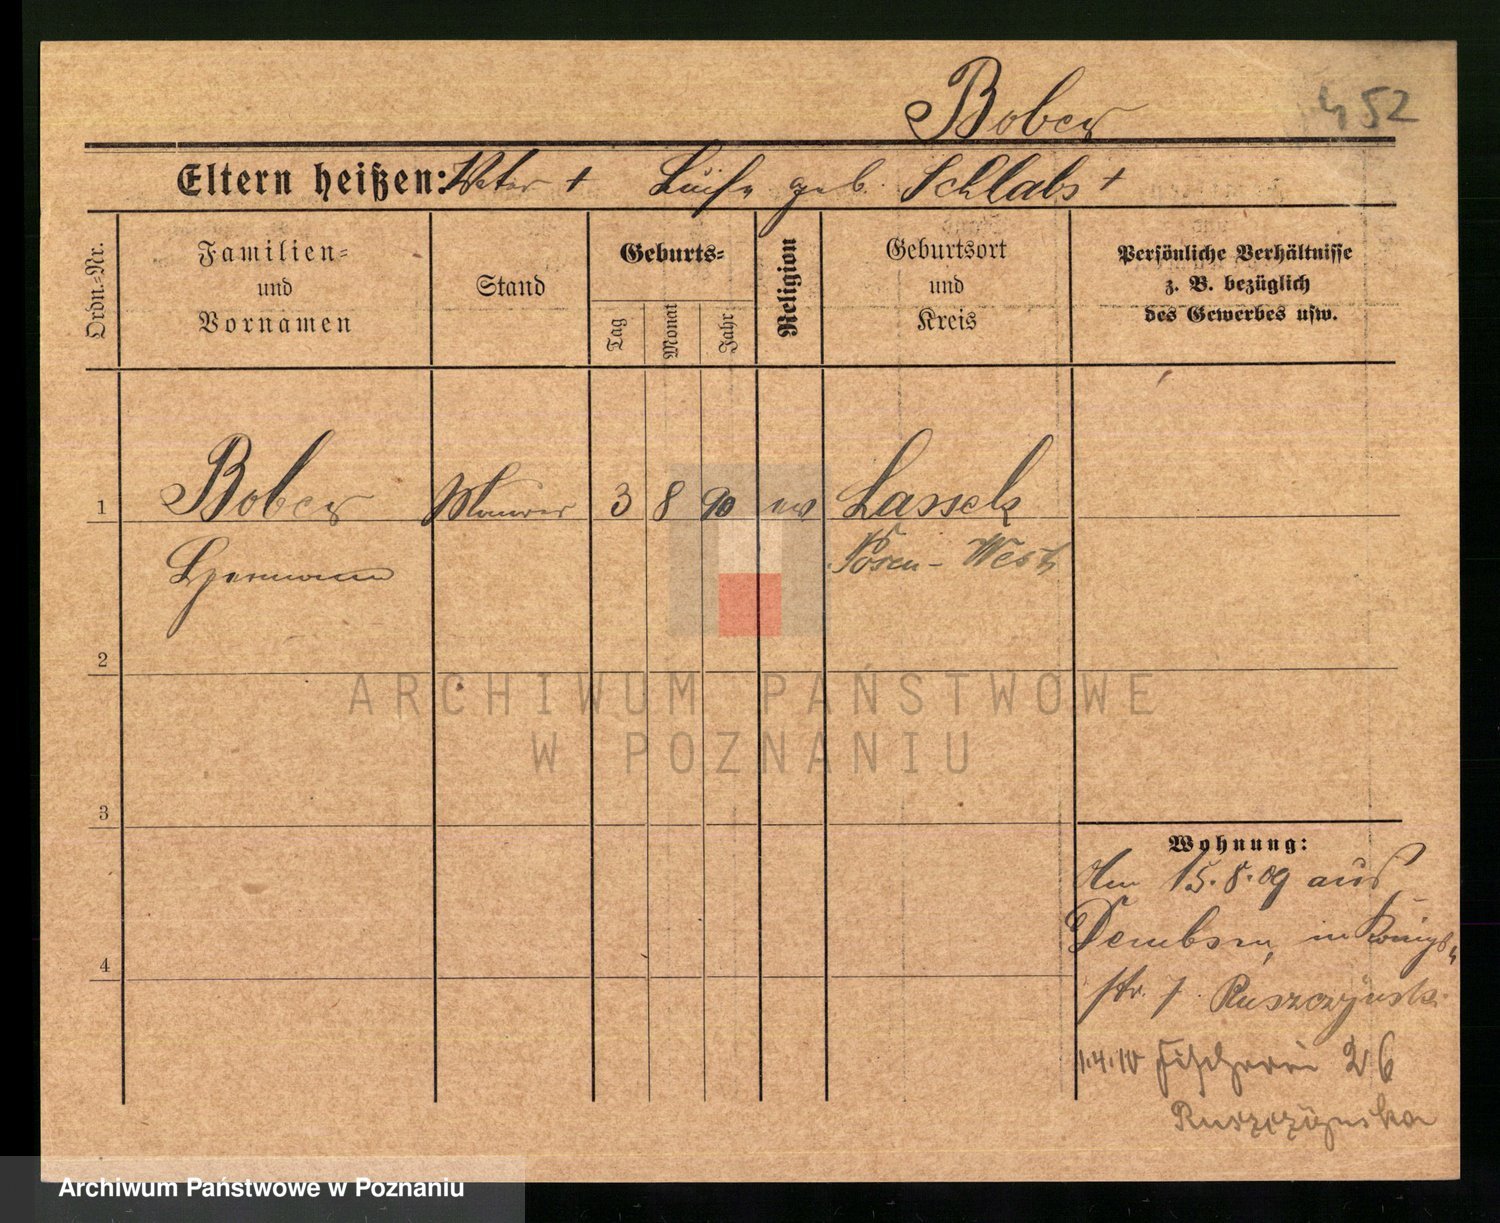 Bober
452
Eltern heißen: Peter + Luise geb. Schlabs +
Ordn.-Nr.
Familien-
und
Vornamen
Stand
Geburts-
Tag
Monat
Jahr
Religion
Geburtsort
und
Kreis
Persönliche Verhältnisse
z. B. bezüglich
des Gewerbes usw.
1 Bober Maurer 3 8 90 ev Lassek
Hermann Posen-West
2
ARCHIWUM PAŃSTWOWE
W POZNANIU
3
Wohnung:
Am 15.8.09 aus
Dembsen, in Königs
str. 7. Ruszczynski
4
1.4.10 Fischerei 26
Ruszczynska
Archiwum Państwowe w Poznaniu